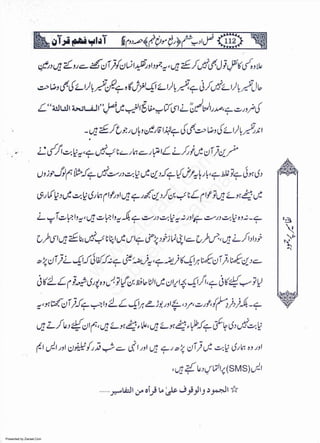 آداب فہم قرآن فصل ادب ششم (رفع موانع فہم) حصہ دوم 112
علاوہ کسی کا نقل قول بھی نہیں کرتے ہیں، یہ جمود اور تقلید انسان کو قرآن سمجھنے سے روکتے ہیں درعین
حال تفسیر بالرائے بھی نہیں کرنی ہے تفسیر بالرائے کی لغزش گاہ ہے لیکن تفسیر بالرائے کی بھی وضاحت
کی ضرورت ہے صدر المتألھین نے اسی کتاب مفاتیح الغیب میں فصل "الفاتحۃ الثالثۃ" کے
اندر تفسیر بالرائے کی وضاحت بھی کی ہے لہٰذا قارئین وہاں رجوع کر سکتے ہیں۔
مفسرین قرآن میں غور کرنے کے اعتبار سے ہمارے نائب نہیں ہے، یہ نیابت اگر کسی نے
دی ہوئی ہے تو غلط ہے، بارہا یہ عرض کیا ہے کہ دین میں نیابت درست نہیں ہے کہ مثلاً ہم لوگ حوزوں
میں بیٹھے ہوئے ہیں تو عوام کے نائب بن کر دین سمجھ رہے ہیں اور عوام ہماری نیابت میں دنیا کما رہی
ہے۔ نہ وہ نیابت درست ہے اور نہ یہ نیابت درست ہے بلکہ یہ واجبات ہیں، یہ واجبات آپ نے
خود ادا کرنے ہیں، جس طرح سے اپنی نماز خود پڑھنی ہے اس میں اپنا نائب نہیں بنا سکتے ہیں اسی طرح
سے دین سیکھنا، قرآن سیکھنا ہر ایک کا فریضہ ہے، یہ فرض عینی ہے نہ کہ کفائی کہ ایک نے قرآن پڑھ
لیا تو سب کیلئے کافی ہے، اگر ایک بچہ ایران میں اٹھا حافظ بن گیا تو بس وہ پوری شیعہ قوم کے لئے کافی
ہے۔ بلکہ فرد فرد مسلم کو، عورت، مرد، بچے اور بوڑھے ہر ایک کے لئے واجب ہے کہ قرآن سمجھنا ہو، یہ
نیابت نہیں دی جا سکتی ہے کہ طلباء بیٹھے ہوئے ہیں، علماء بیٹھے ہوئے ہیں، ہم ان کیلئے دعا کرتے ہیں
اور وہ ہماری نیابت میں قرآن پڑھ رہے ہیں اور انہی سے شب قدر کو ٹیلیفون اور ایس ایم
ایس (SMS) پر التماس دعا کہتے ہیں۔
☆ الجمود والوقوف علیٰ ما قرأہ من التفاسیر......
Presented by Ziaraat.Com